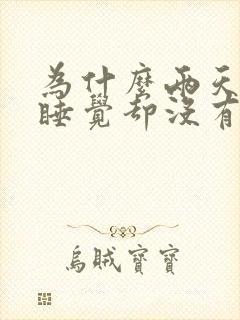 為什麼兩天
睡覺却沒有
烏賊寶寶